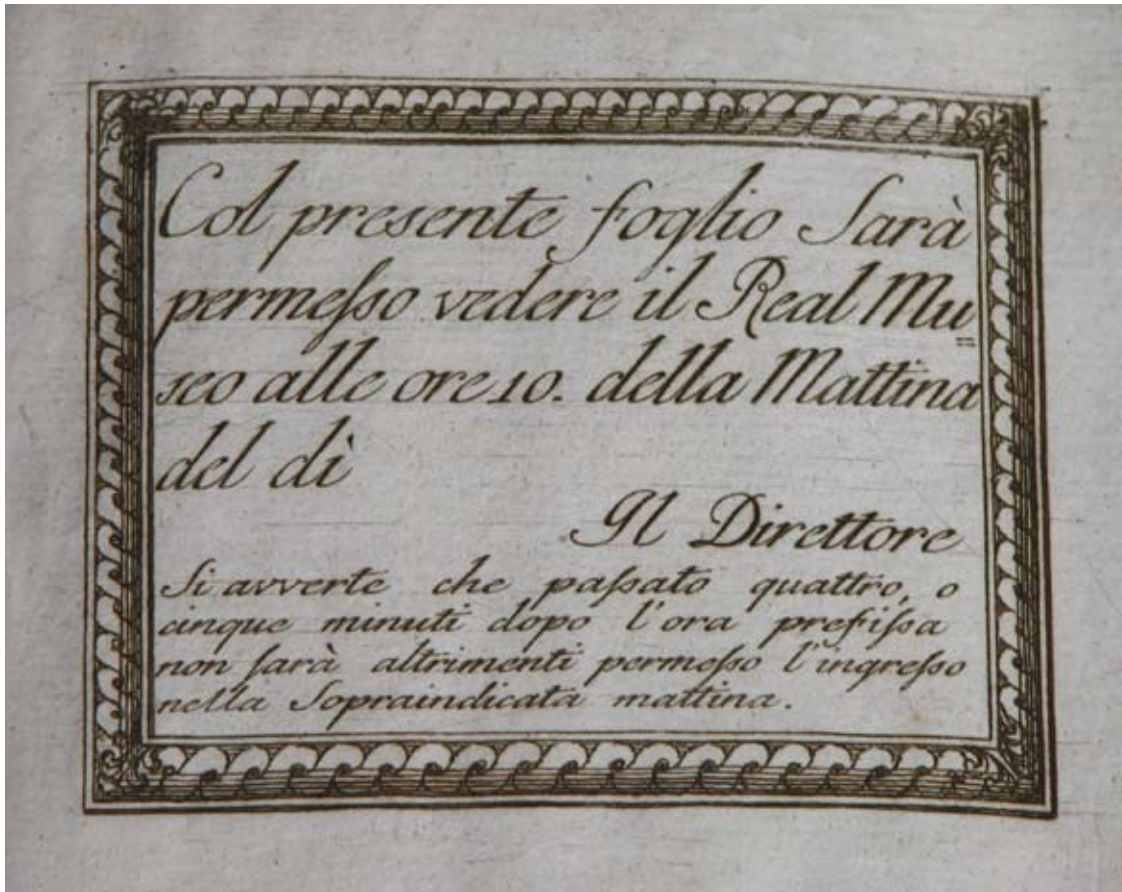 Col presente foglio Sarà
permeſso vedere il Real Mu=
seo alle ore 10. della Mattina
del dì
Il Direttore
Si avverte che paſsato quattro, o
cinque minuti dopo l'ora prefiſsa
non ſarà altrimenti permeſso l'ingreſso
nella Sopraindicata mattina.